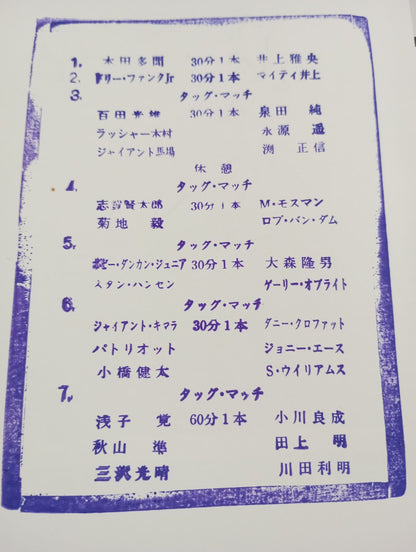 1. 本田多聞 30分1本 井上雅央
2. ドリー・ファンクJr 30分1本 マイティ井上
3. タッグ・マッチ
百田光雄 30分1本 泉田純
ラッシャー木村 永源遥
ジャイアント馬場 渕正信
休憩
4. タッグ・マッチ
志賀賢太郎 30分1本 M・モスマン
菊地毅 ロブ・バン・ダム
5. タッグ・マッチ
ボビー・ダンカン・ジュニア 30分1本 大森隆男
スタン・ハンセン ゲーリー・オブライト
6. タッグ・マッチ
ジャイアント・キマラ 30分1本 ダニー・クロファット
パトリオット ジョニー・エース
小橋健太 S・ウイリアムス
7. タッグ・マッチ
浅子覚 60分1本 小川良成
秋山準 田上明
三沢光晴 川田利明